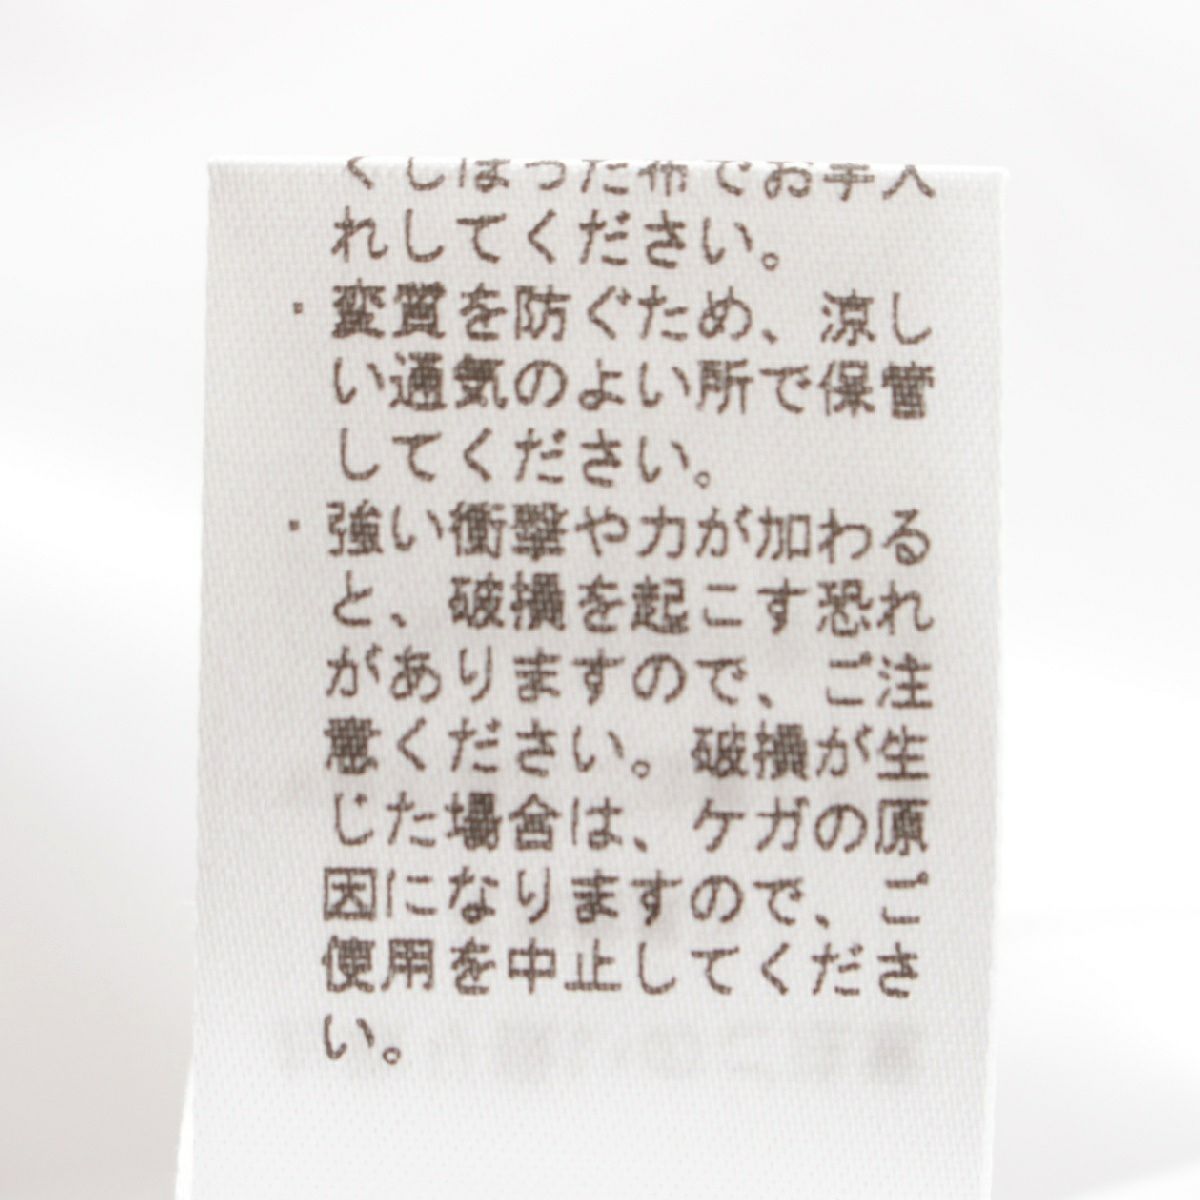 くしぼった布でお手入
れしてください。
・変質を防ぐため、涼し
い通気のよい所で保管
してください。
・強い衝撃や力が加わる
と、破損を起こす恐れ
がありますので、ご注
意ください。破損が生
じた場合は、ケガの原
因になりますので、ご
使用を中止してくださ
い。